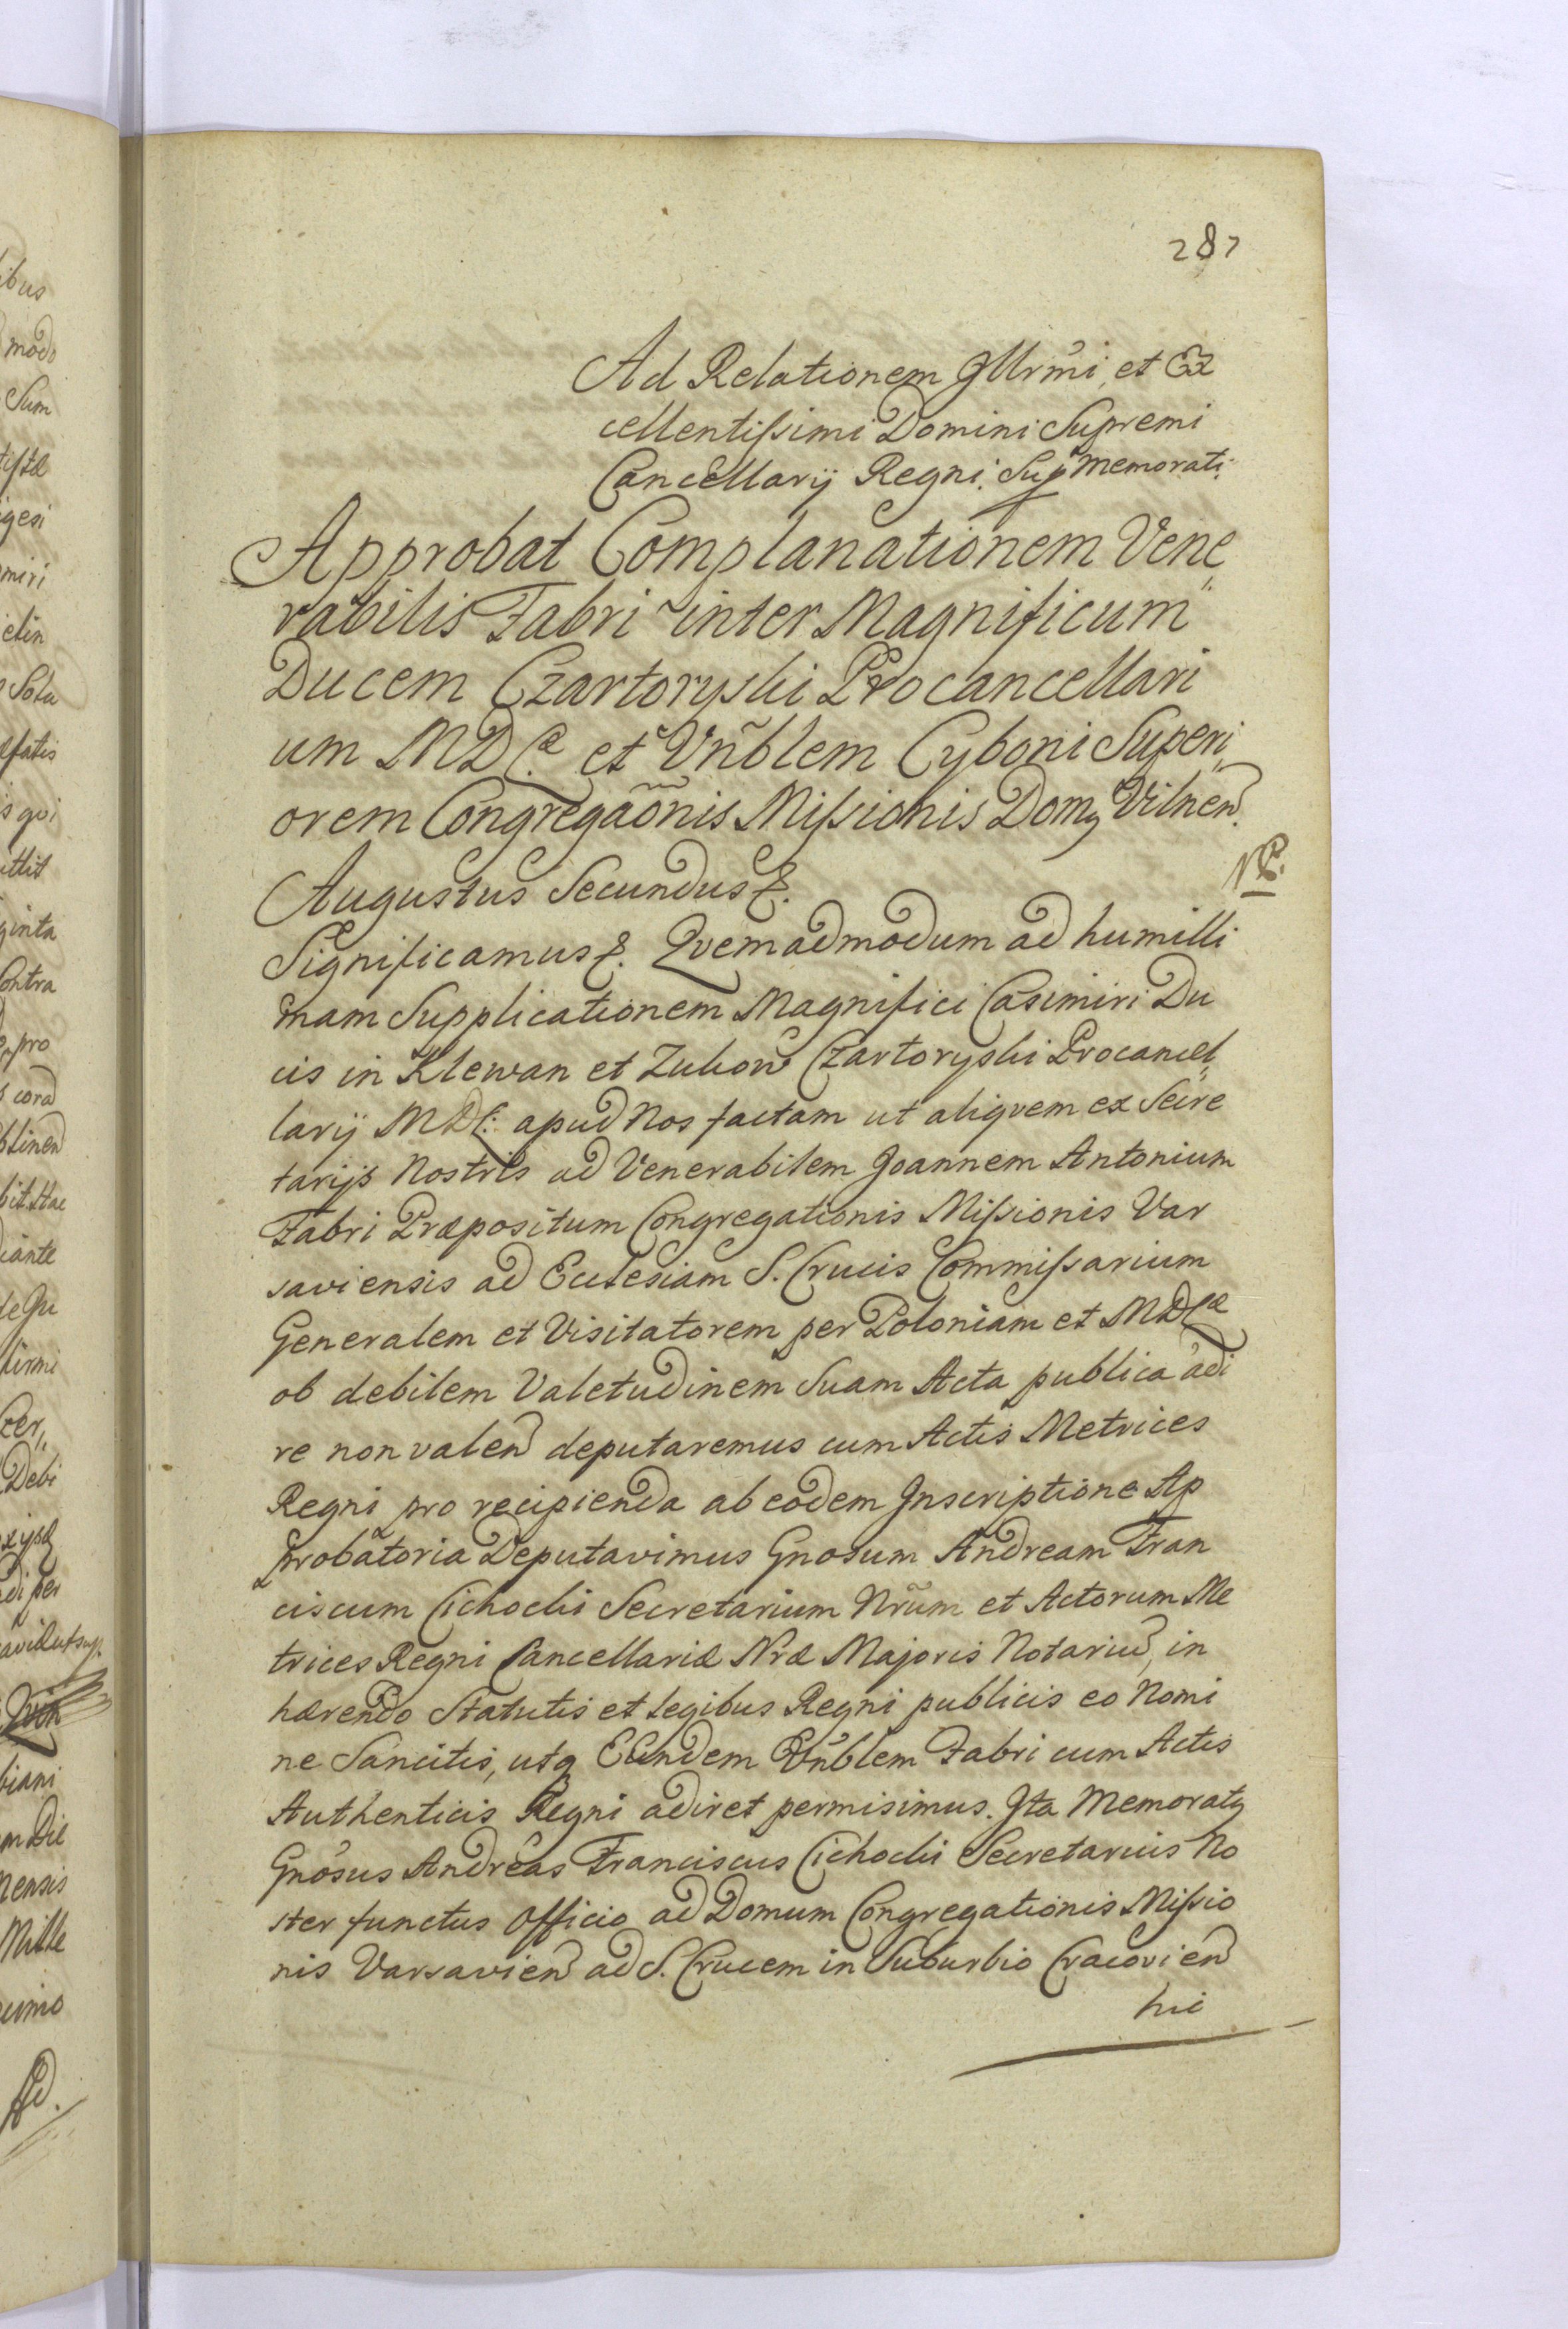 287
Ad Relationem Jllrmi, et Ex
cellentissimi Domini Supremi
Cancellarij Regni. Supmemorati.
Approbat Complanationem Vene„
rabilis Fabri inter Magnificum
Ducem Czartoryski Procancellari
um MDLæ et Vnblem Cyboni Superi„
orem Congregaõnis Missionis Domq Vilnen.
NP.
Augustus Secundus &.
Significamus &. Qvemadmodum ad humilli
mam Supplicationem Magnifici Casimiri Du
cis in Klewan et Zukow Czartoryski Procancel„
larij MDL: apud Nos factam ut aliqvem ex Secre
tarijs Nostris ad Venerabilem Joannem Antonium
Fabri Præpositum Congregationis Missionis Var
saviensis ad Ecclesiam S. Crucis Commissarium
Generalem et Visitatorem per Poloniam et MDLæ
ob debilem Valetudinem Suam Acta publica adi
re non valen deputaremus cum Actis Metrices
Regni pro recipienda ab eodem Jnscriptione Ap
probatoria Deputavimus Gnosum Andream Fran
ciscum Cichocki Secretarium Nrum et Actorum Me
trices Regni Cancellariæ Nræ Majoris Notariu, in
hærendo Statutis et Legibus Regni publicis eo Nomi
ne Sancitis, utq Eundem Vnblem Fabri cum Actis
Authenticis Regni adiret permisimus. Jta Memoratq
Gnosus Andreas Franciscus Cichocki Secretarius No
ster functus Officio ad Domum Congregationis Missio
nis Varsavien ad S. Crucem in Suburbio Cracovien
hic